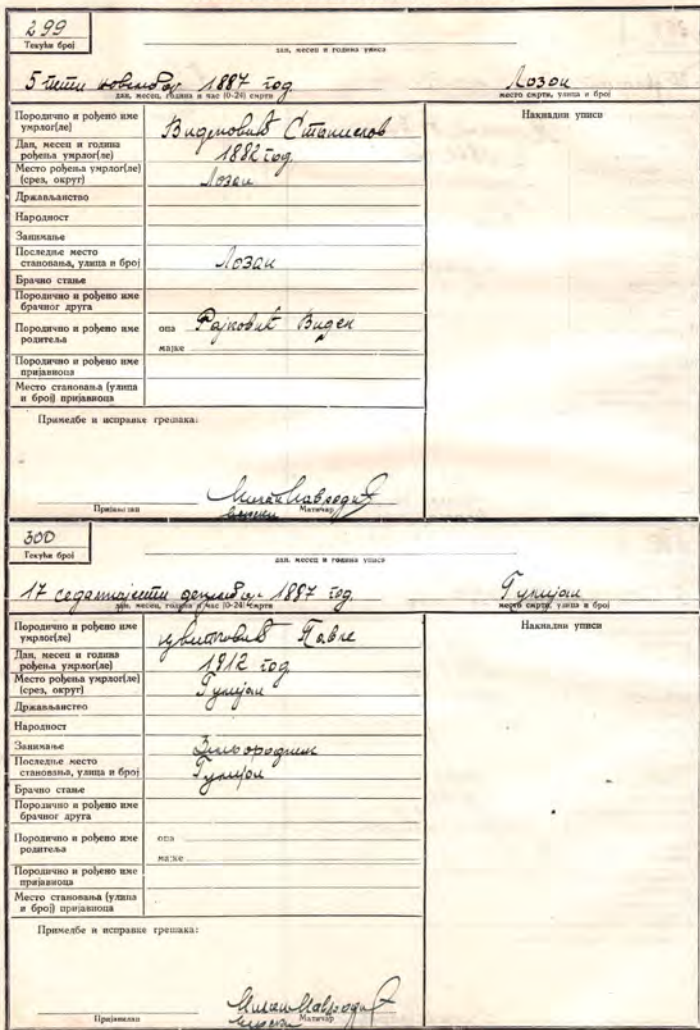 299
Текући број
дан, месец и година уписа
5 пети новембар 1887 год
дан, месец, година и час (0-24) смрти
Лозан
место смрти, улица и број
Породично и рођено име умрлог(ле)
Виденовић Станислов
Накнадни уписи
Дан, месец и година рођења умрлог(ле)
1882 год
Место рођења умрлог(ле) (срез, округ)
Лозан
Држављанство
Народност
Занимање
Последње место становања, улица и број
Лозан
Брачно стање
Породично и рођено име брачног друга
Породично и рођено име родитеља
оца Рајковић Виден
мајке
Породично и рођено име пријавиоца
Место становања (улица и број) пријавиоца
Примедбе и исправке грешака:
Пријавилац
Матичар
300
Текући број
дан, месец и година уписа
17 седамнајести децембар 1887 год.
дан, месец, година и час (0-24) смрти
Гулијан
место смрти, улица и број
Породично и рођено име умрлог(ле)
Цветковић Павле
Накнадни уписи
Дан, месец и година рођења умрлог(ле)
1812 год
Место рођења умрлог(ле) (срез, округ)
Гулијан
Држављанство
Народност
Занимање
Последње место становања, улица и број
Гулијан
Брачно стање
Породично и рођено име брачног друга
Породично и рођено име родитеља
оца
мајке
Породично и рођено име пријавиоца
Место становања (улица и број) пријавиоца
Примедбе и исправке грешака:
Пријавилац
Матичар